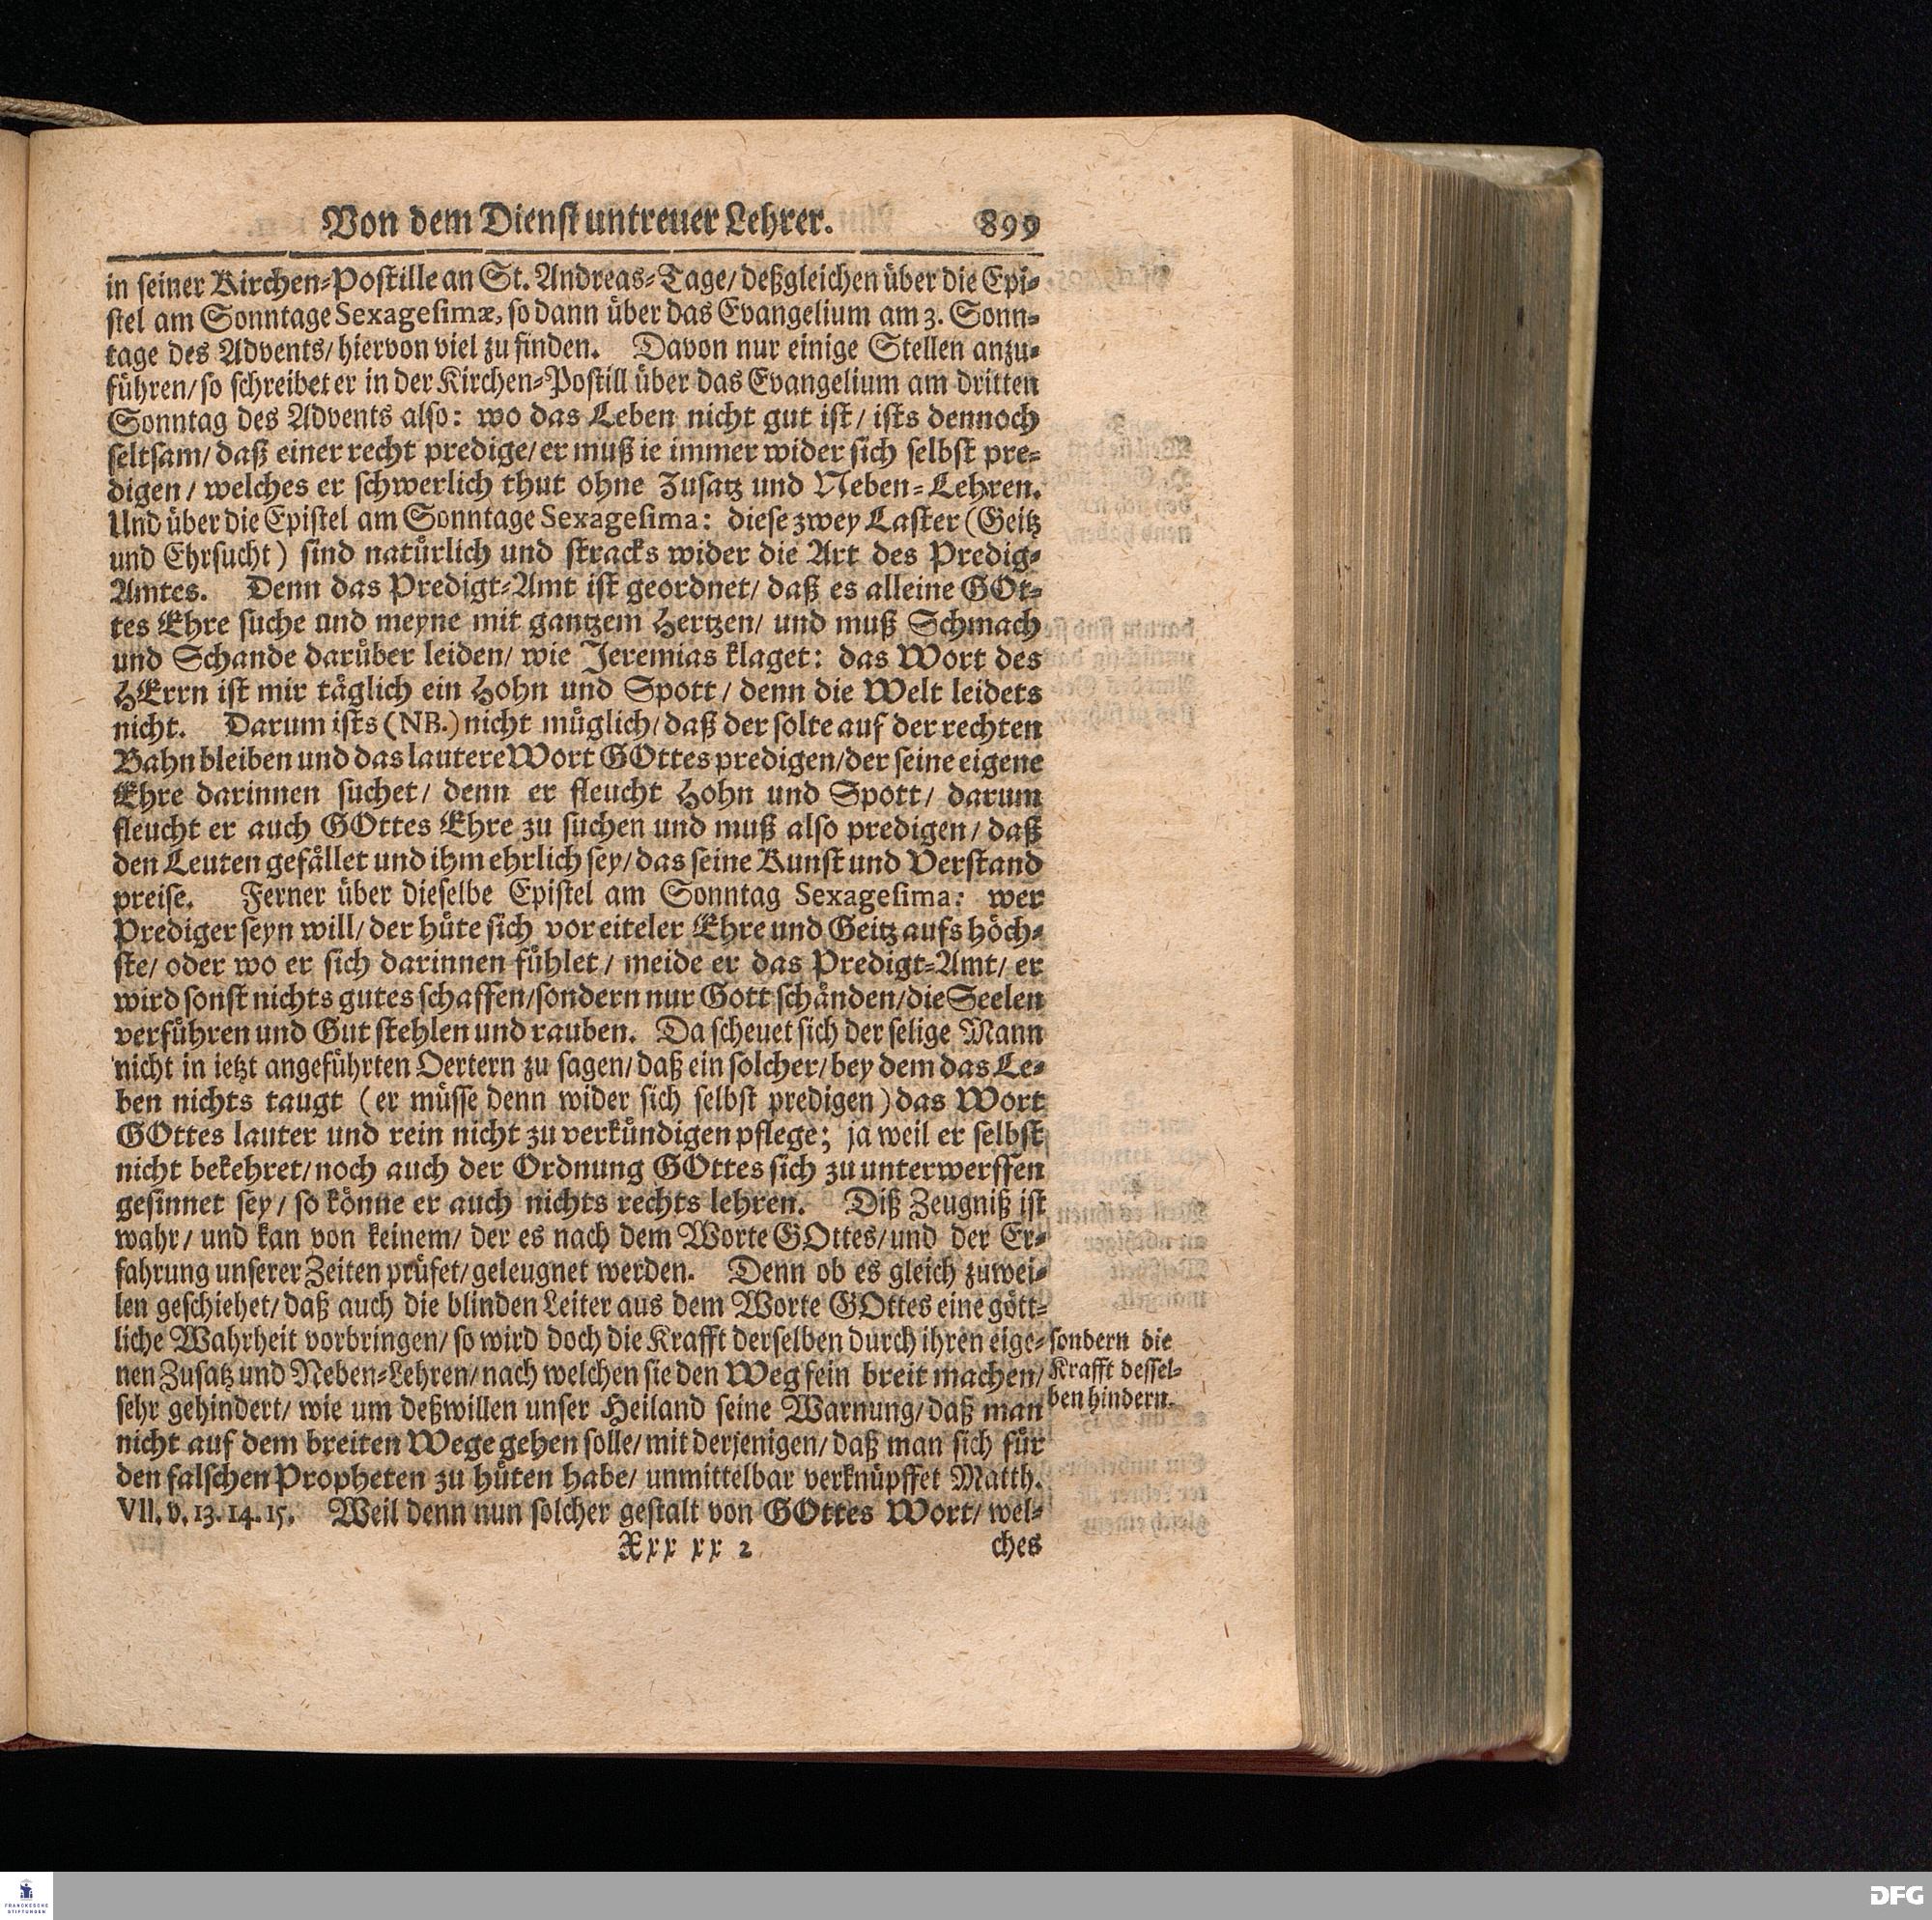 Von dem Dienst untreuer Lehrer. 899
in seiner Kirchen-Postille an St. Andreas-Tage/ deßgleichen über die Epi-
stel am Sonntage Sexagesimæ, so dann über das Evangelium am 3. Sonn-
tage des Advents/ hiervon viel zu finden. Davon nur einige Stellen anzu-
führen/ so schreibet er in der Kirchen-Postill über das Evangelium am dritten
Sonntag des Advents also: wo das Leben nicht gut ist/ ists dennoch
seltsam/ daß einer recht predige/ er muß ie immer wider sich selbst pre-
digen/ welches er schwerlich thut ohne Zusatz und Neben-Lehren.
Und über die Epistel am Sonntage Sexagesima: diese zwey Laster (Geitz
und Ehrsucht) sind natürlich und stracks wider die Art des Predig-
Amtes. Denn das Predigt-Amt ist geordnet/ daß es alleine GOt-
tes Ehre suche und meyne mit gantzem Hertzen/ und muß Schmach
und Schande darüber leiden/ wie Jeremias klaget: das Wort des
HErrn ist mir täglich ein Hohn und Spott/ denn die Welt leidets
nicht. Darum ists (NB.) nicht müglich/ daß der solte auf der rechten
Bahn bleiben und das lautere Wort GOttes predigen/ der seine eigene
Ehre darinnen suchet/ denn er fleucht Hohn und Spott/ darum
fleucht er auch GOttes Ehre zu suchen und muß also predigen/ daß
den Leuten gefället und ihm ehrlich sey/ das seine Kunst und Verstand
preise. Ferner über dieselbe Epistel am Sonntag Sexagesima: wer
Prediger seyn will/ der hüte sich vor eiteler Ehre und Geitz aufs höch-
ste/ oder wo er sich darinnen fühlet/ meide er das Predigt-Amt/ er
wird sonst nichts gutes schaffen/ sondern nur Gott schänden/ die Seelen
verführen und Gut stehlen und rauben. Da scheuet sich der selige Mann
nicht in ietzt angeführten Oertern zu sagen/ daß ein solcher/ bey dem das Le-
ben nichts taugt (er müsse denn wider sich selbst predigen) das Wort
GOttes lauter und rein nicht zu verkündigen pflege; ja weil er selbst
nicht bekehret/ noch auch der Ordnung GOttes sich zu unterwerffen
gesinnet sey/ so könne er auch nichts rechts lehren. Diß Zeugniß ist
wahr/ und kan von keinem/ der es nach dem Worte GOttes/ und der Er-
fahrung unserer Zeiten prüfet/ geleugnet werden. Denn ob es gleich zuwei-
len geschiehet/ daß auch die blinden Leiter aus dem Worte GOttes eine gött-
liche Wahrheit vorbringen/ so wird doch die Krafft derselben durch ihren eige-
nen Zusatz und Neben-Lehren/ nach welchen sie den Weg fein breit machen/
sehr gehindert/ wie um deßwillen unser Heiland seine Warnung/ daß man
nicht auf dem breiten Wege gehen solle/ mit derjenigen/ daß man sich für
den falschen Propheten zu hüten habe/ unmittelbar verknüpffet Matth.
VII. v. 13. 14. 15. Weil denn nun solcher gestalt von GOttes Wort/ wel-
Xxx xx 2 ches
sondern die
Krafft dessel-
ben hindern.
FRANCKESCHE
STIFTUNGEN
DFG